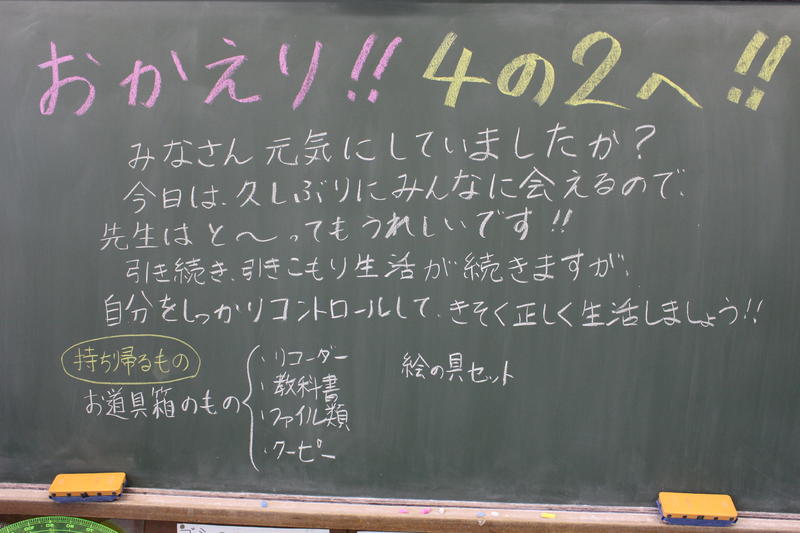 おかえり!! 4の2へ!!
みなさん 元気にしていましたか?
今日は、久しぶりにみんなに会えるので、
先生はと〜ってもうれしいです!!
引き続き、引きこもり生活が続きますが、
自分をしっかりコントロールして、きそく正しく生活しましょう!!
持ち帰るもの
お道具箱のもの
・リコーダー
・教科書
・ファイル類
・クーピー
絵の具セット